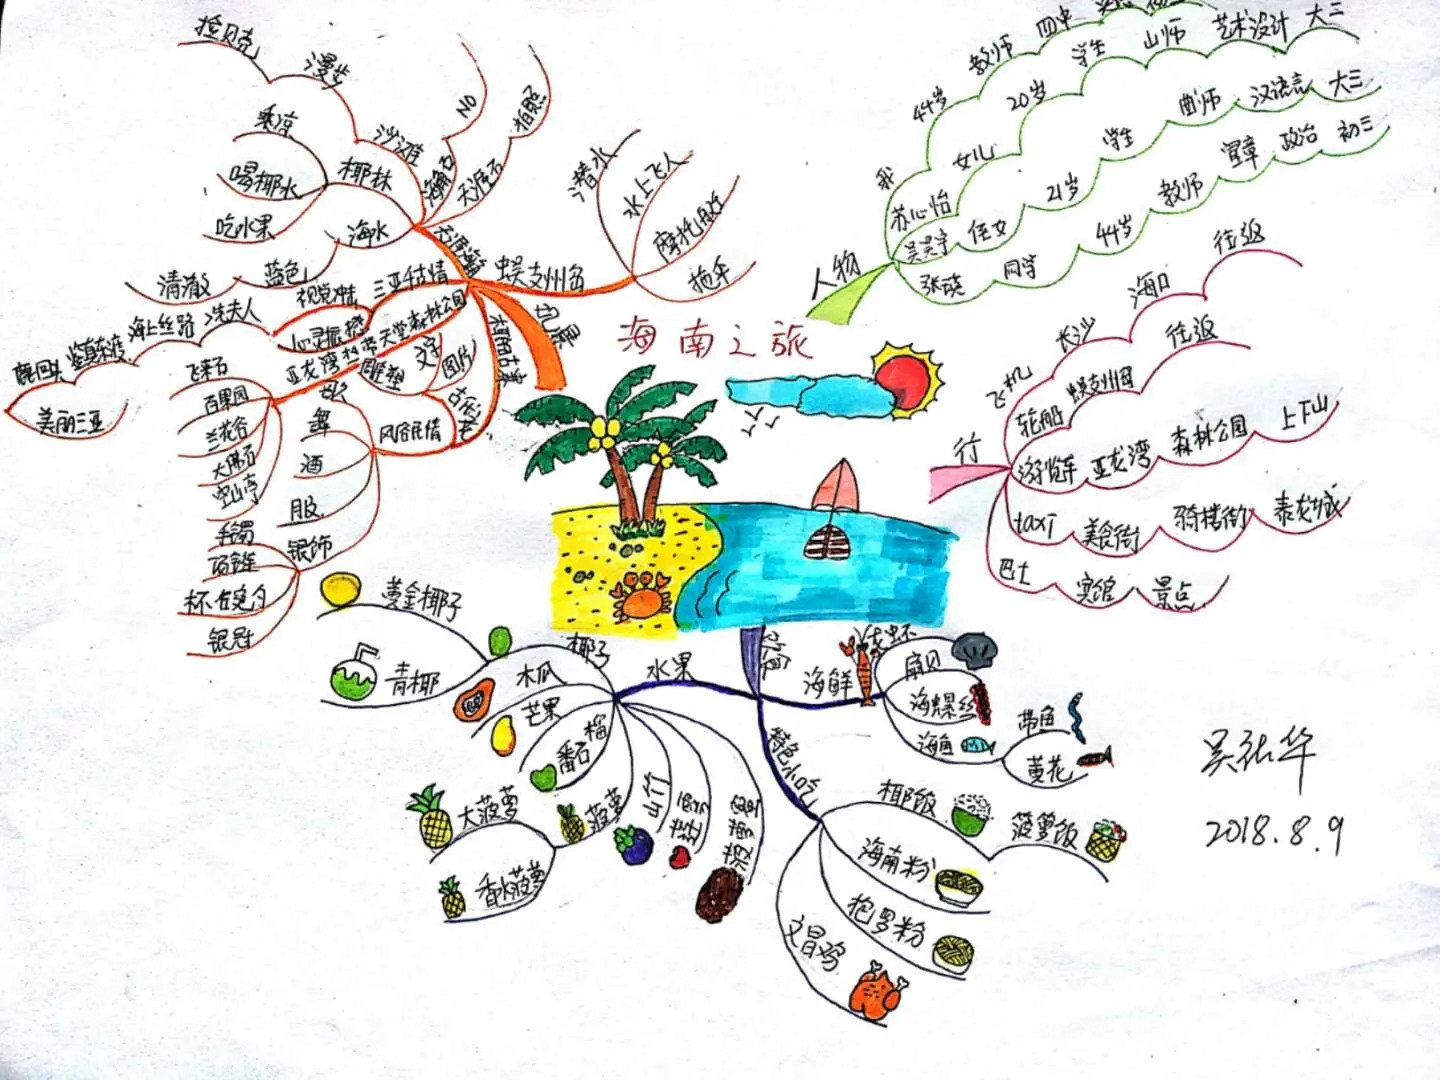 海南之旅
人物
我
44岁
教师
四中
苏心怡
女儿
20岁
学生
山师
艺术设计
大三
吴昊宇
侄女
21岁
学生
曲师
汉语言
大三
张晓
同学
44岁
教师
宜章
政治
初三
行
飞机
长沙
海口
往返
轮船
蜈支州岛
往返
游览车
亚龙湾
森林公园
上下山
taxi
美食街
骑楼街
泰龙城
巴士
宾馆
景点
饮食
海鲜
扇贝
海螺丝
海鱼
带鱼
黄花
特色小吃
椰饭
菠萝饭
海南粉
抱罗粉
文昌鸡
水果
椰子
黄金椰子
青椰
木瓜
芒果
番石榴
菠萝
大菠萝
香水菠萝
山竹
风景
天涯海角
沙滩
漫步
捡贝壳
椰林
乘凉
喝椰水
吃水果
海水
蓝色
清澈
海角石
NO
天涯石
拍照
蜈支州岛
潜水
水上飞人
摩托快艇
拖伞
三亚千古情
视觉冲击
心灵振撼
冼夫人
海上丝路
鉴真东渡
鹿回头
美丽三亚
亚龙湾热带天堂森林公园
飞来石
百果园
兰花谷
大佛石
空山亭
文字
图片
雕塑
风俗民情
歌
舞
酒
服
银饰
手镯
项链
银冠
吴祐华
2018.8.9